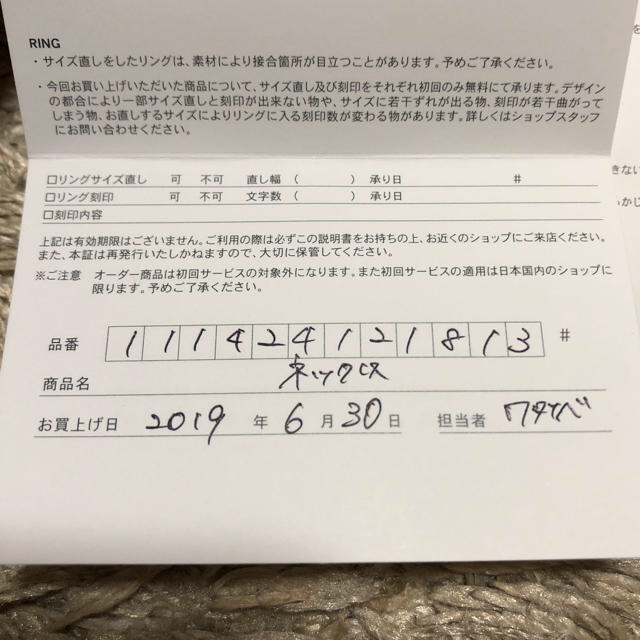 RING
・サイズ直しをしたリングは、素材により接合箇所が目立つことがあります。予めご了承ください。
・今回お買い上げいただいた商品について、サイズ直し及び刻印をそれぞれ初回のみ無料にて承ります。デザイン
の都合により一部サイズ直しと刻印が出来ない物や、サイズに若干ずれが出る物、刻印が若干曲がって
しまう物、お直しするサイズによりリングに入る刻印数が変わる物があります。詳しくはショップスタッフ
にお問い合わせください。
きない
らかじ
□リングサイズ直し 可 不可 直し幅 ( ) 承り日 #
□リング刻印 可 不可 文字数 ( ) 承り日
□刻印内容
上記は有効期限はございません。ご利用の際は必ずこの説明書をお持ちの上、お近くのショップにご来店ください。
また、本証は再発行いたしかねますので、大切に保管してください。
※ご注意 オーダー商品は初回サービスの対象外になります。また初回サービスの適用は日本国内のショップに
限ります。予めご了承ください。
品番 111424121813 #
商品名 ネックレス
お買上げ日 2019 年 6 月 30 日 担当者 ワタナベ